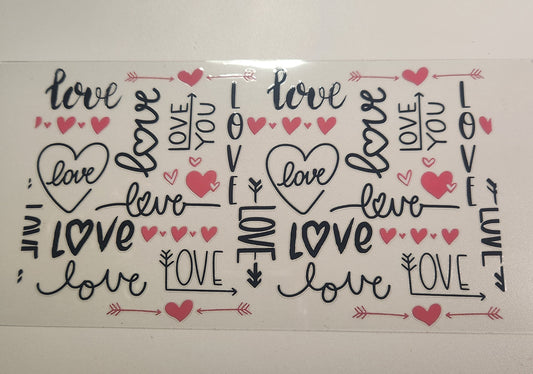 love
love
LOVE YOU
LOVE
love
love
LOVE
LOVE
LOVE
love
LOVE
love
love
LOVE YOU
LOVE
love
love
LOVE
LOVE
LOVE
love